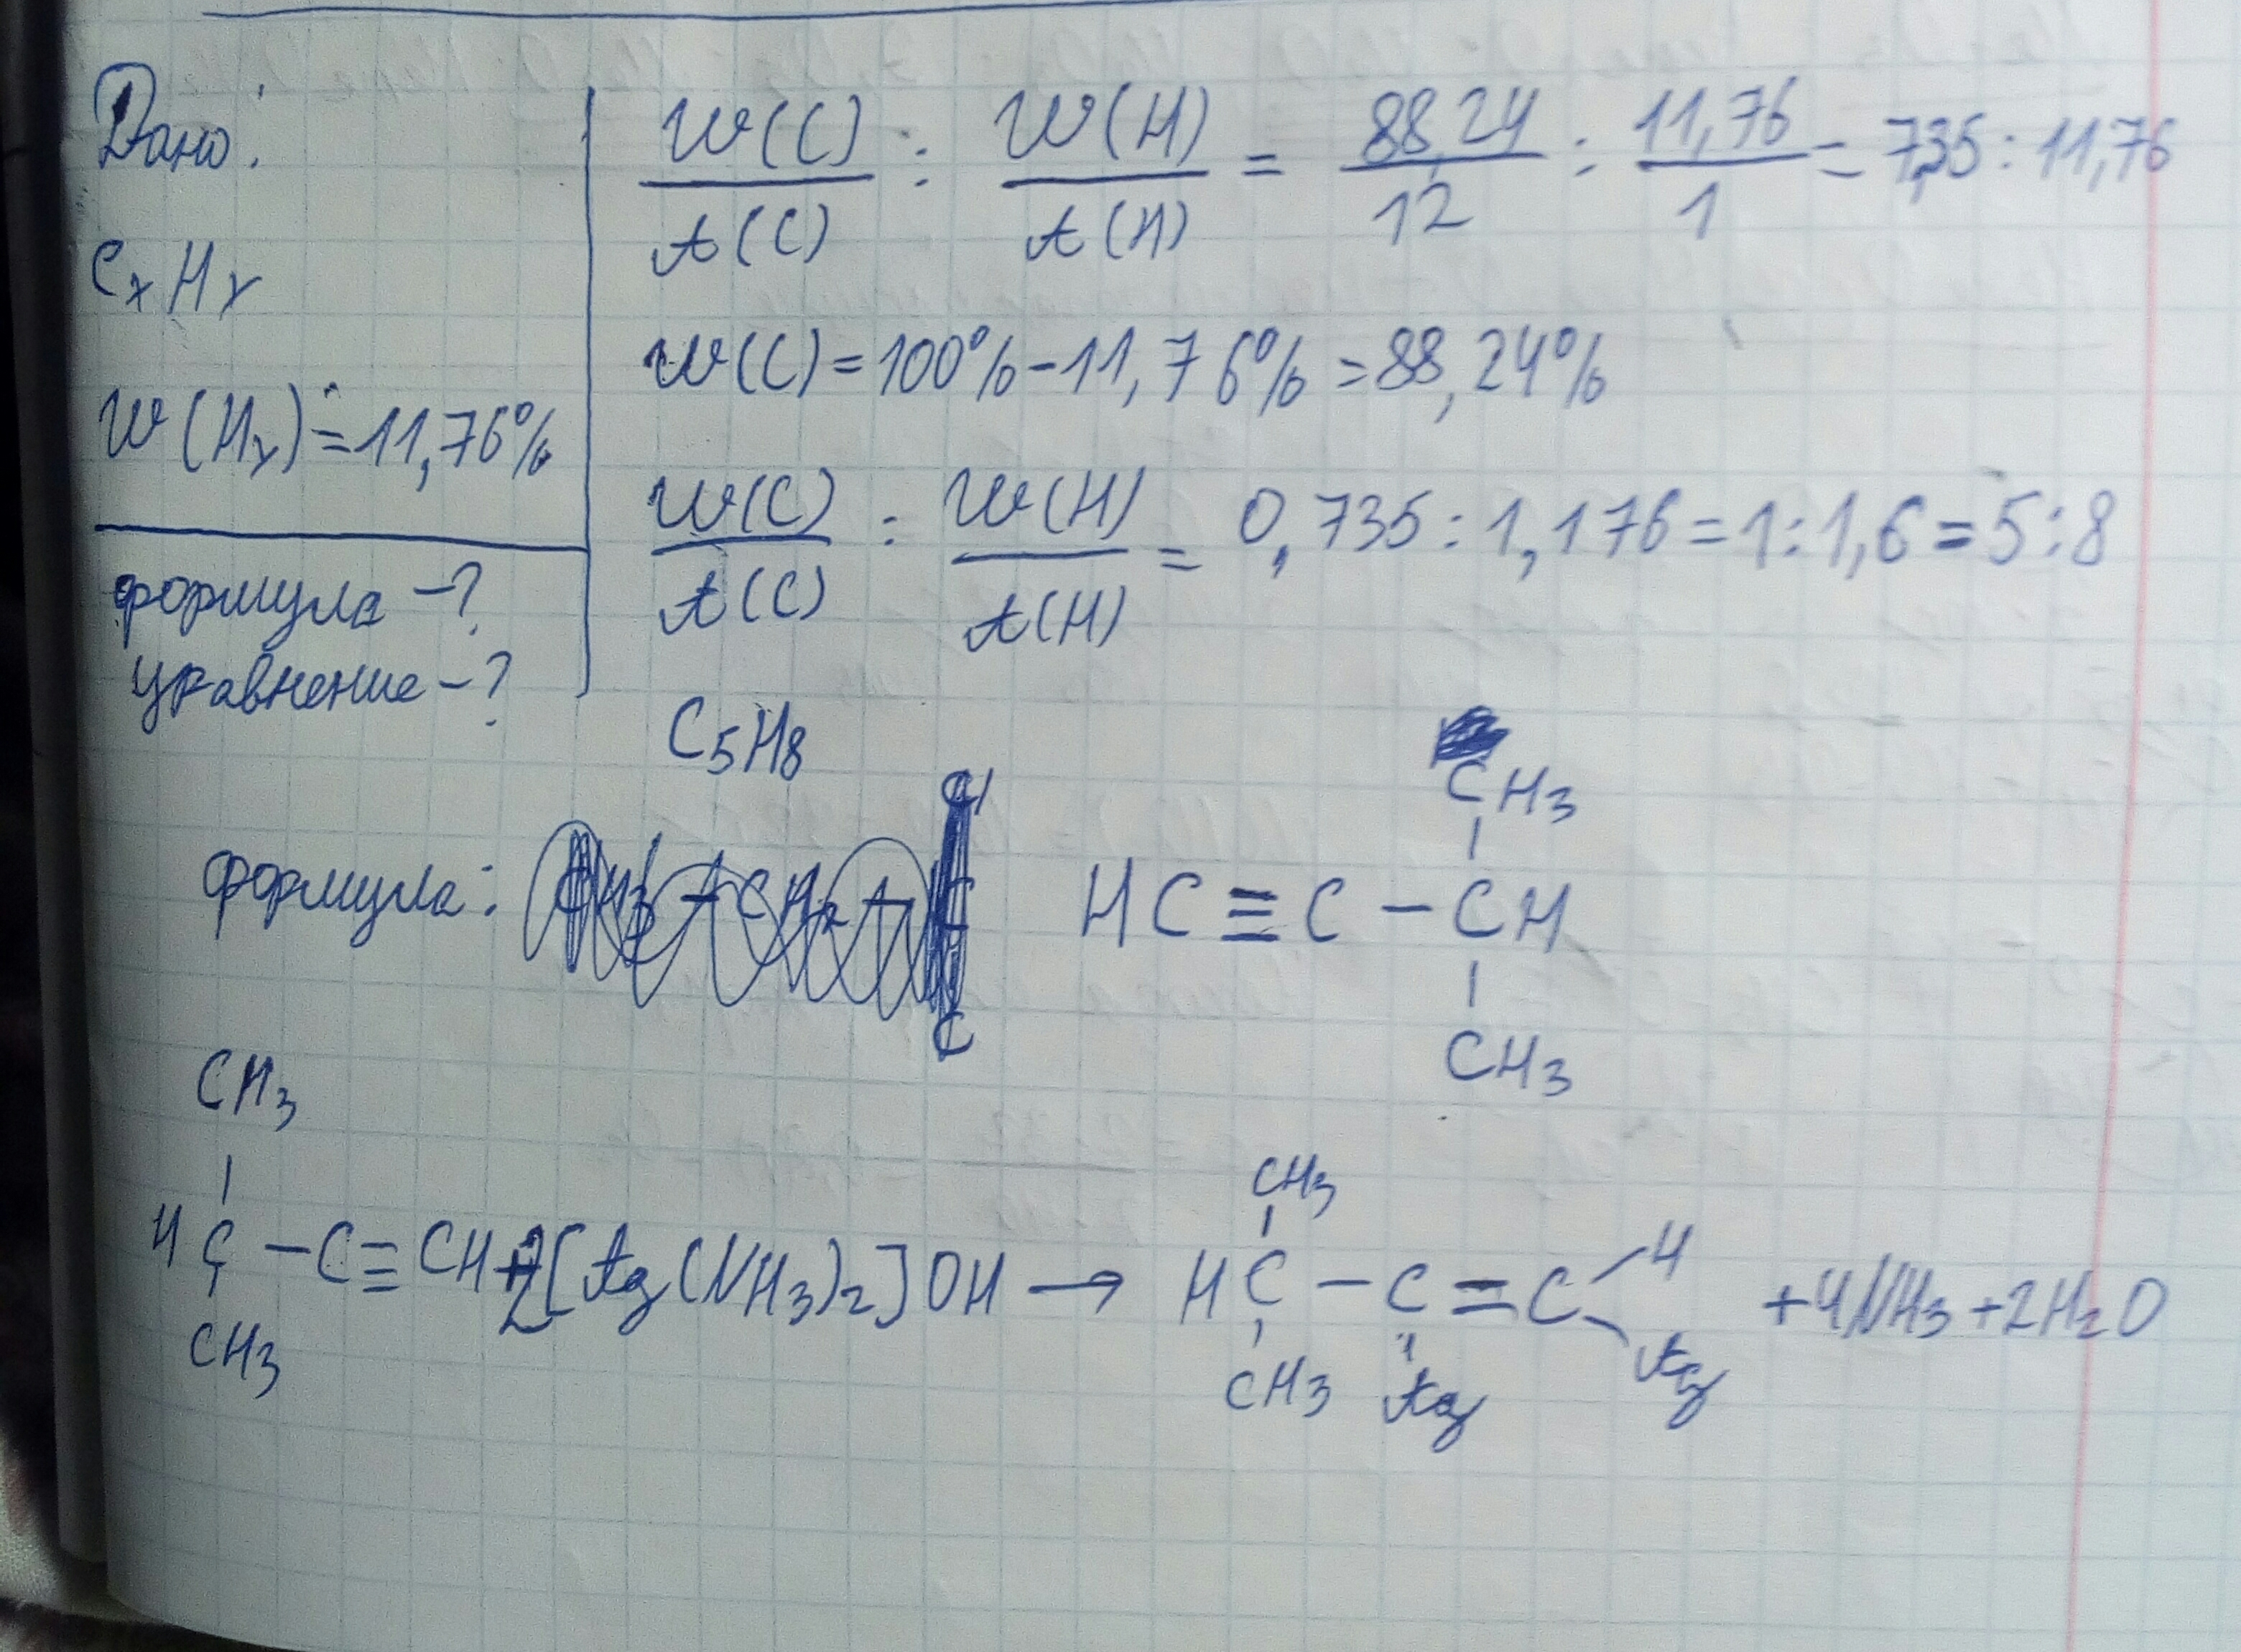 Дано:
CxHy
W(Hy) = 11,76%
формула - ?
уравнение - ?
W(C)/A(C) : W(H)/A(H) = 88,24/12 : 11,76/1 = 7,35 : 11,76
W(C) = 100% - 11,76% = 88,24%
W(C)/A(C) : W(H)/A(H) = 0,735 : 1,176 = 1 : 1,6 = 5 : 8
C5H8
CH3
формула: HC ≡ C – CH
CH3
CH3
HC – C ≡ CH + 2[Ag(NH3)2]OH →
CH3
CH3
HC – C = C H + 4NH3 + 2H2O
CH3 Ag Ag